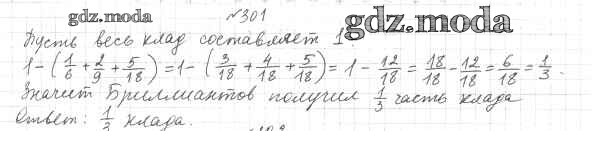 gdz.moda №301 gdz.moda
Пусть весь клад составляет 1.
1-(1/6+2/9+5/18)=1-(3/18+4/18+5/18)=1-12/18=18/18-12/18=6/18=1/3.
Значит Бриллиантов получил 1/3 часть клада
Ответ: 1/3 клада.